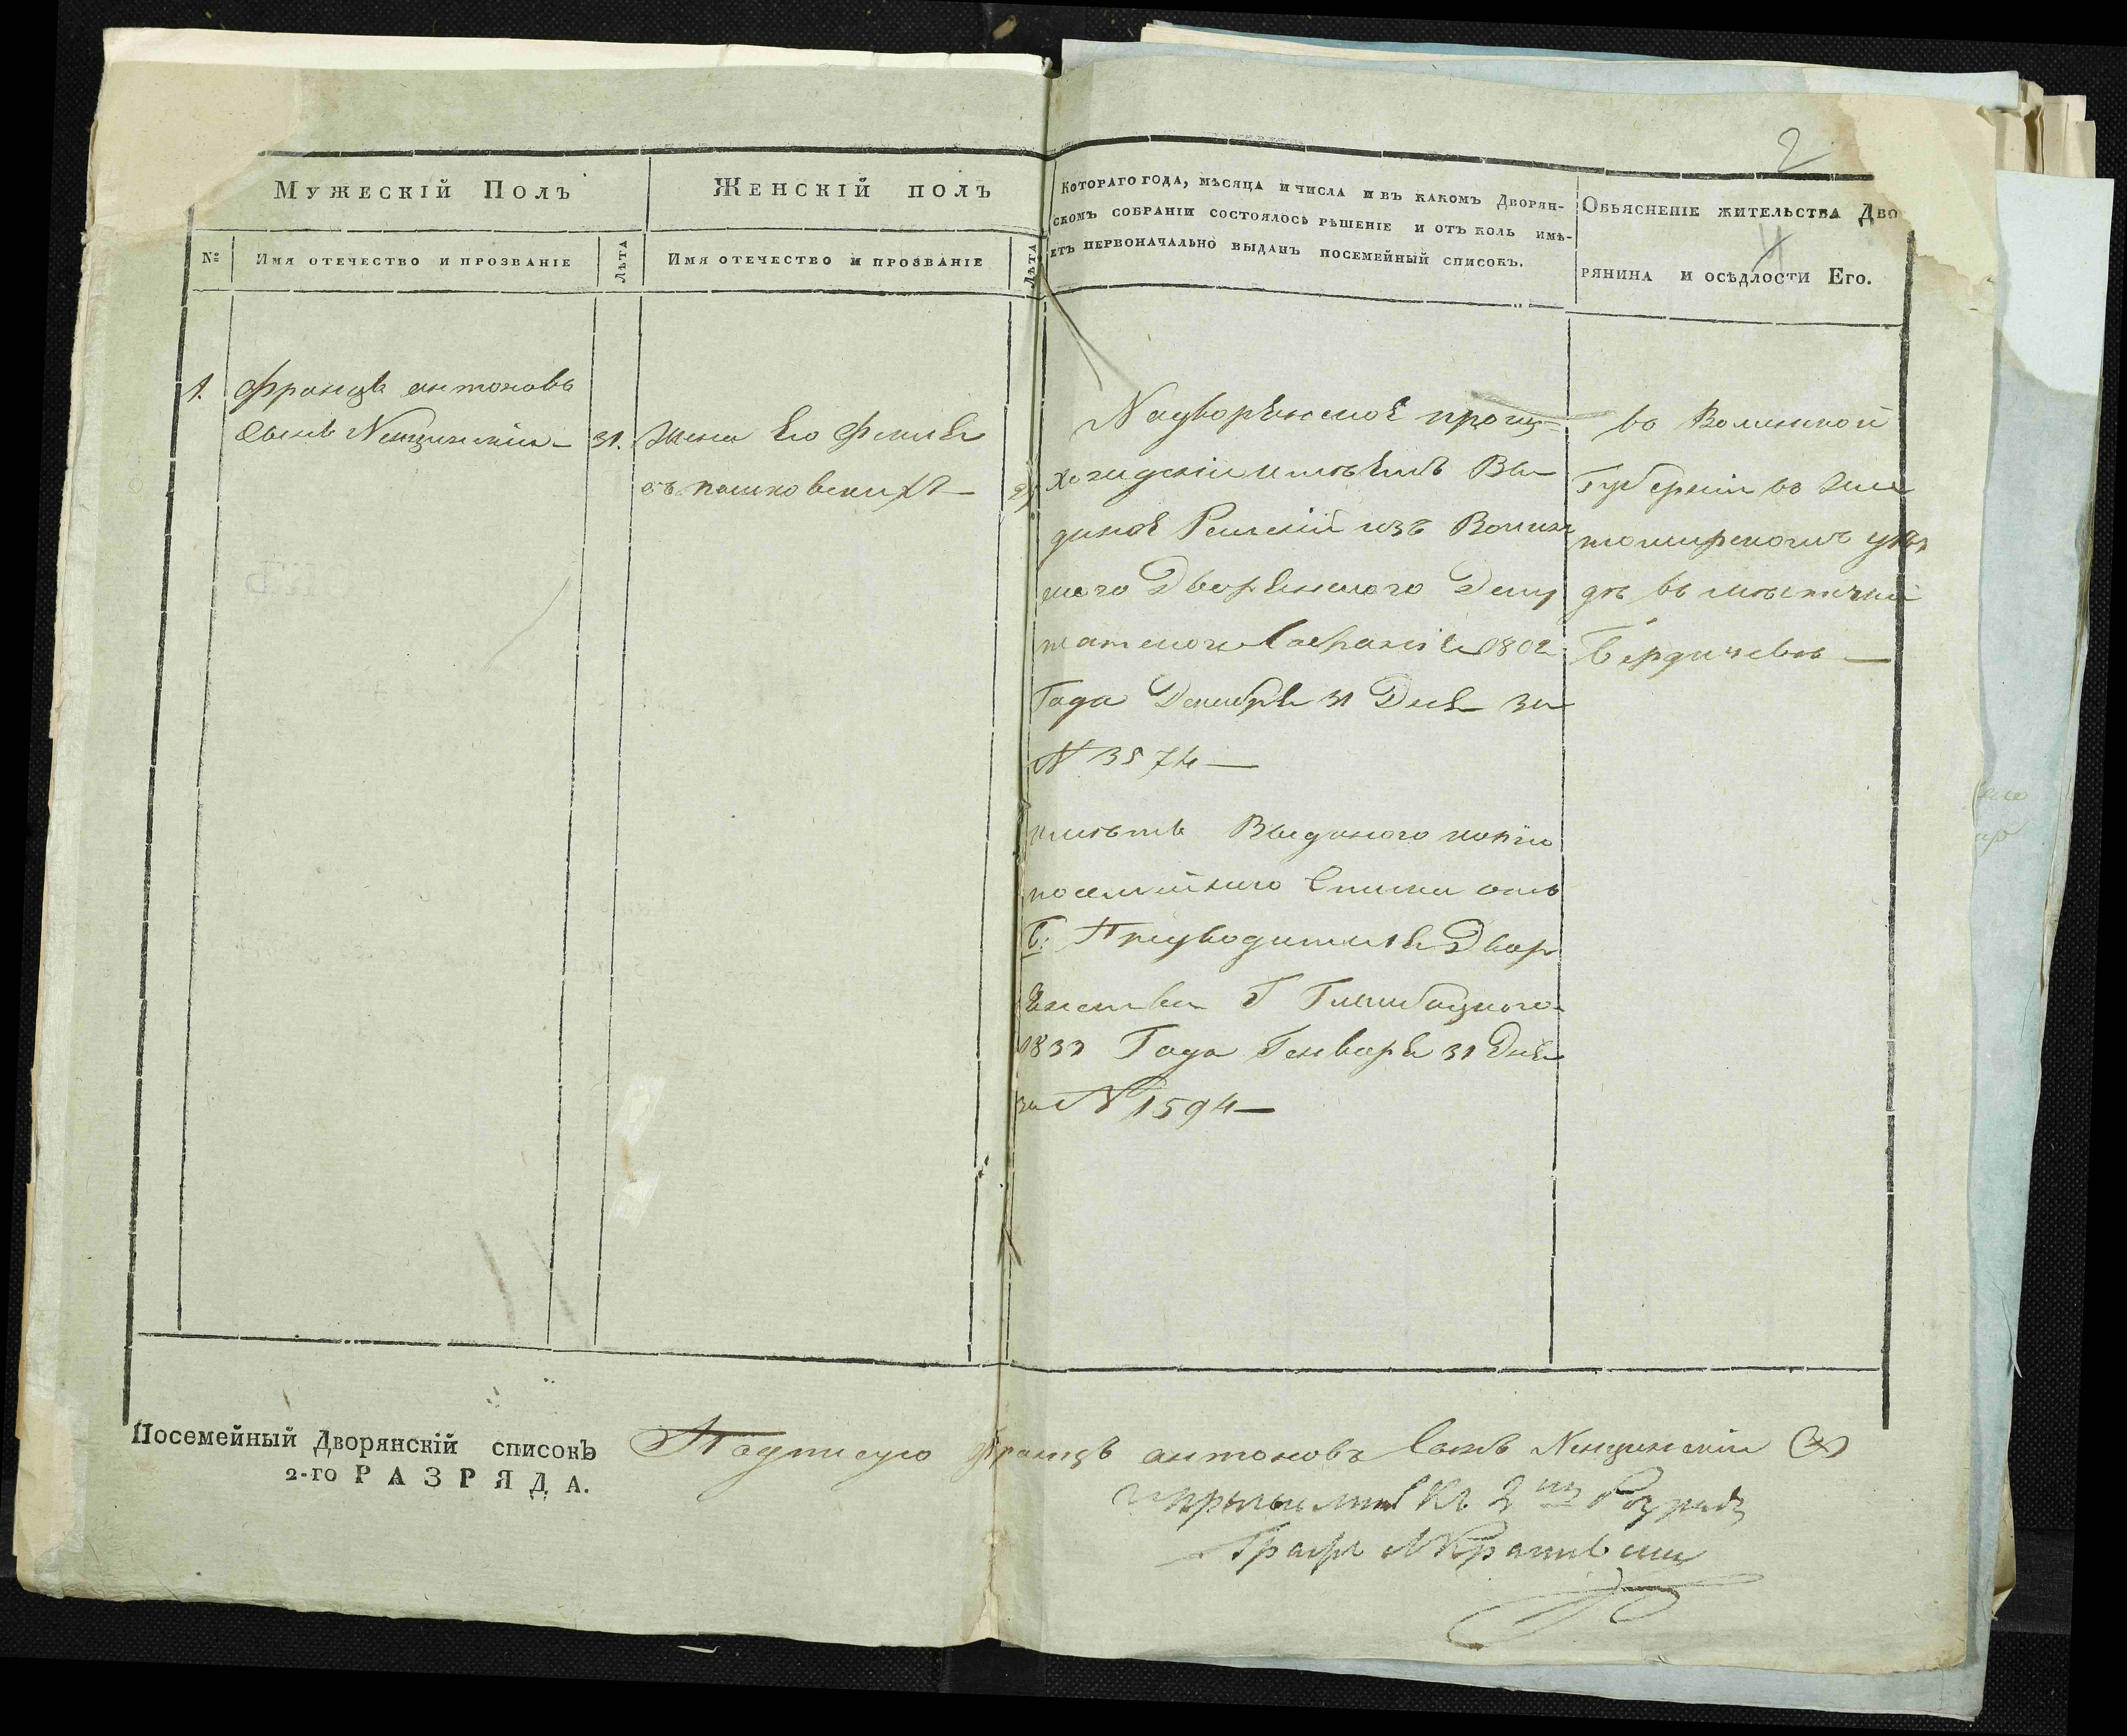 2
Мужескій Полъ
Женскій полъ
Котораго года, мѣсяца и числа и въ какомъ Дворян-
скомъ собраніи состоялось рѣшеніе и отъ коль имѣ-
етъ первоначально выданъ посемейный списокъ.
Объясненіе жительства Дво
рянина и осѣдлости Его.
№
Имя отечество и прозваніе
Лѣта
Имя отечество и прозваніе
Лѣта
1. Францъ антоновъ
сынъ 31.
жена Его
съ
Надворянское проиш=
хождении имѣетъ Вы
даное из Волын
ского Дворянского Депу
татского Собранія 1802
Года Декабря 31 Дня за
N 3574 —
имѣетъ Выданого копию
посемейного Списка отъ
Предводителя Двор
янства Г
Года Генваря 31 Дня
за N 1594 —
во Волинской
Губерніи во Жи
томирскомъ уѣз
дѣ въ мѣстечки
Бердичевѣ —
Посемейный Дворянскій списокъ
2-го РАЗРЯДА.
Подписую Францъ антоновъ Сынъ
къ 2му
Графъ